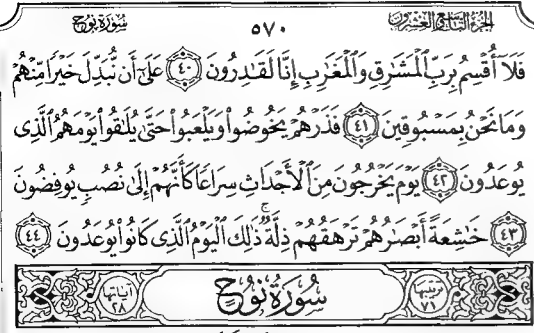 الجزء التاسع والعشرون ٥٧٠ سورة نوح
فَلَآ أُقْسِمُ بِرَبِّ ٱلْمَشَٰرِقِ وَٱلْمَغَٰرِبِ إِنَّا لَقَٰدِرُونَ ٤٠ عَلَىٰٓ أَن نُّبَدِّلَ خَيْرًا مِّنْهُمْ
وَمَا نَحْنُ بِمَسْبُوقِينَ ٤١ فَذَرْهُمْ يَخُوضُوا۟ وَيَلْعَبُوا۟ حَتَّىٰ يُلَٰقُوا۟ يَوْمَهُمُ ٱلَّذِى
يُوعَدُونَ ٤٢ يَوْمَ يَخْرُجُونَ مِنَ ٱلْأَجْدَاثِ سِرَاعًا كَأَنَّهُمْ إِلَىٰ نُصُبٍ يُوفِضُونَ
٤٣ خَٰشِعَةً أَبْصَٰرُهُمْ تَرْهَقُهُمْ ذِلَّةٌ ۚ ذَٰلِكَ ٱلْيَوْمُ ٱلَّذِى كَانُوا۟ يُوعَدُونَ ٤٤
ترتيبها ٧١ سُورَةُ نُوحٍ آياتها ٢٨